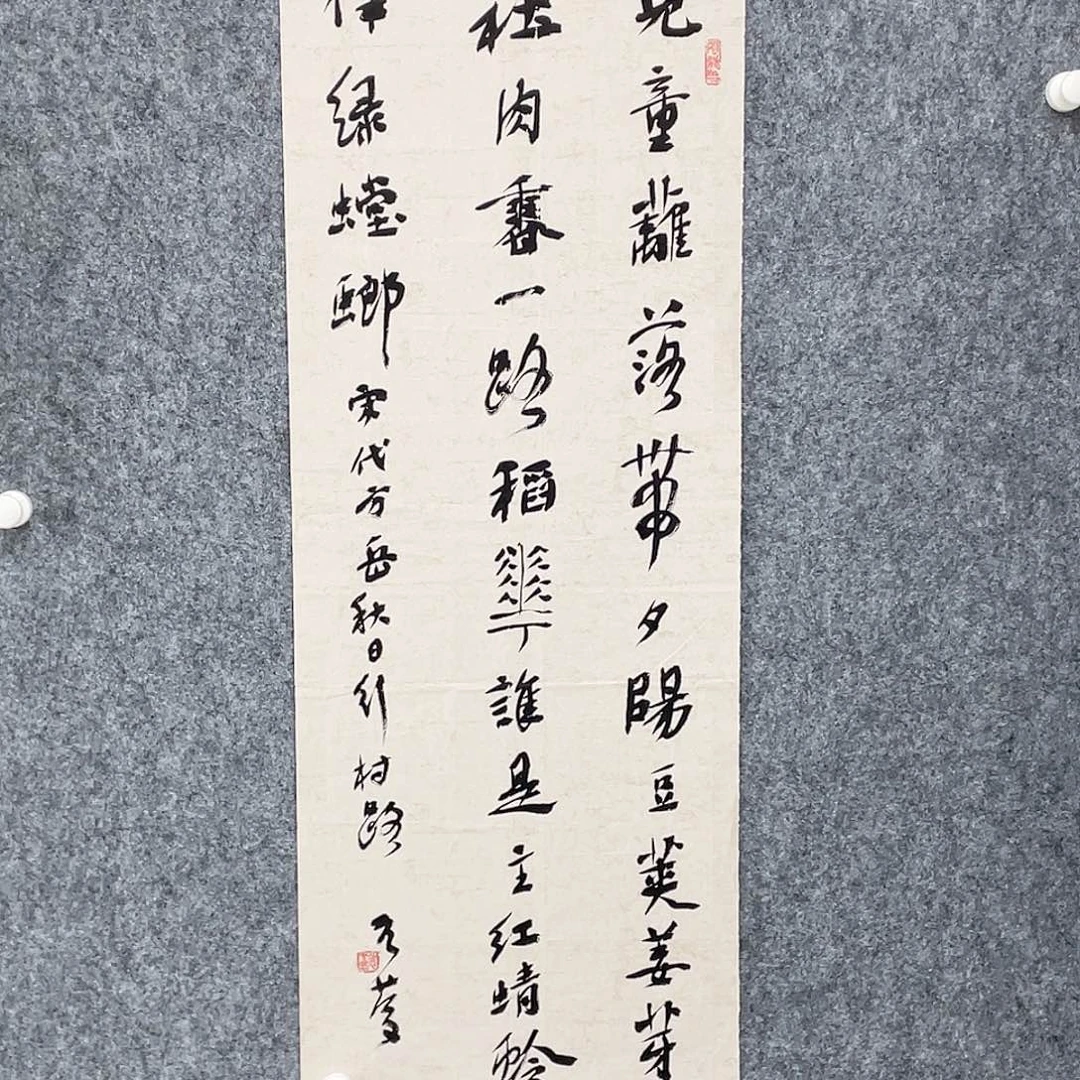 兒童蘺落帶夕陽豆莢姜芽
社肉香一路稻華誰是主紅蜻蛉
伴緑螳螂宋代方岳秋日行村路